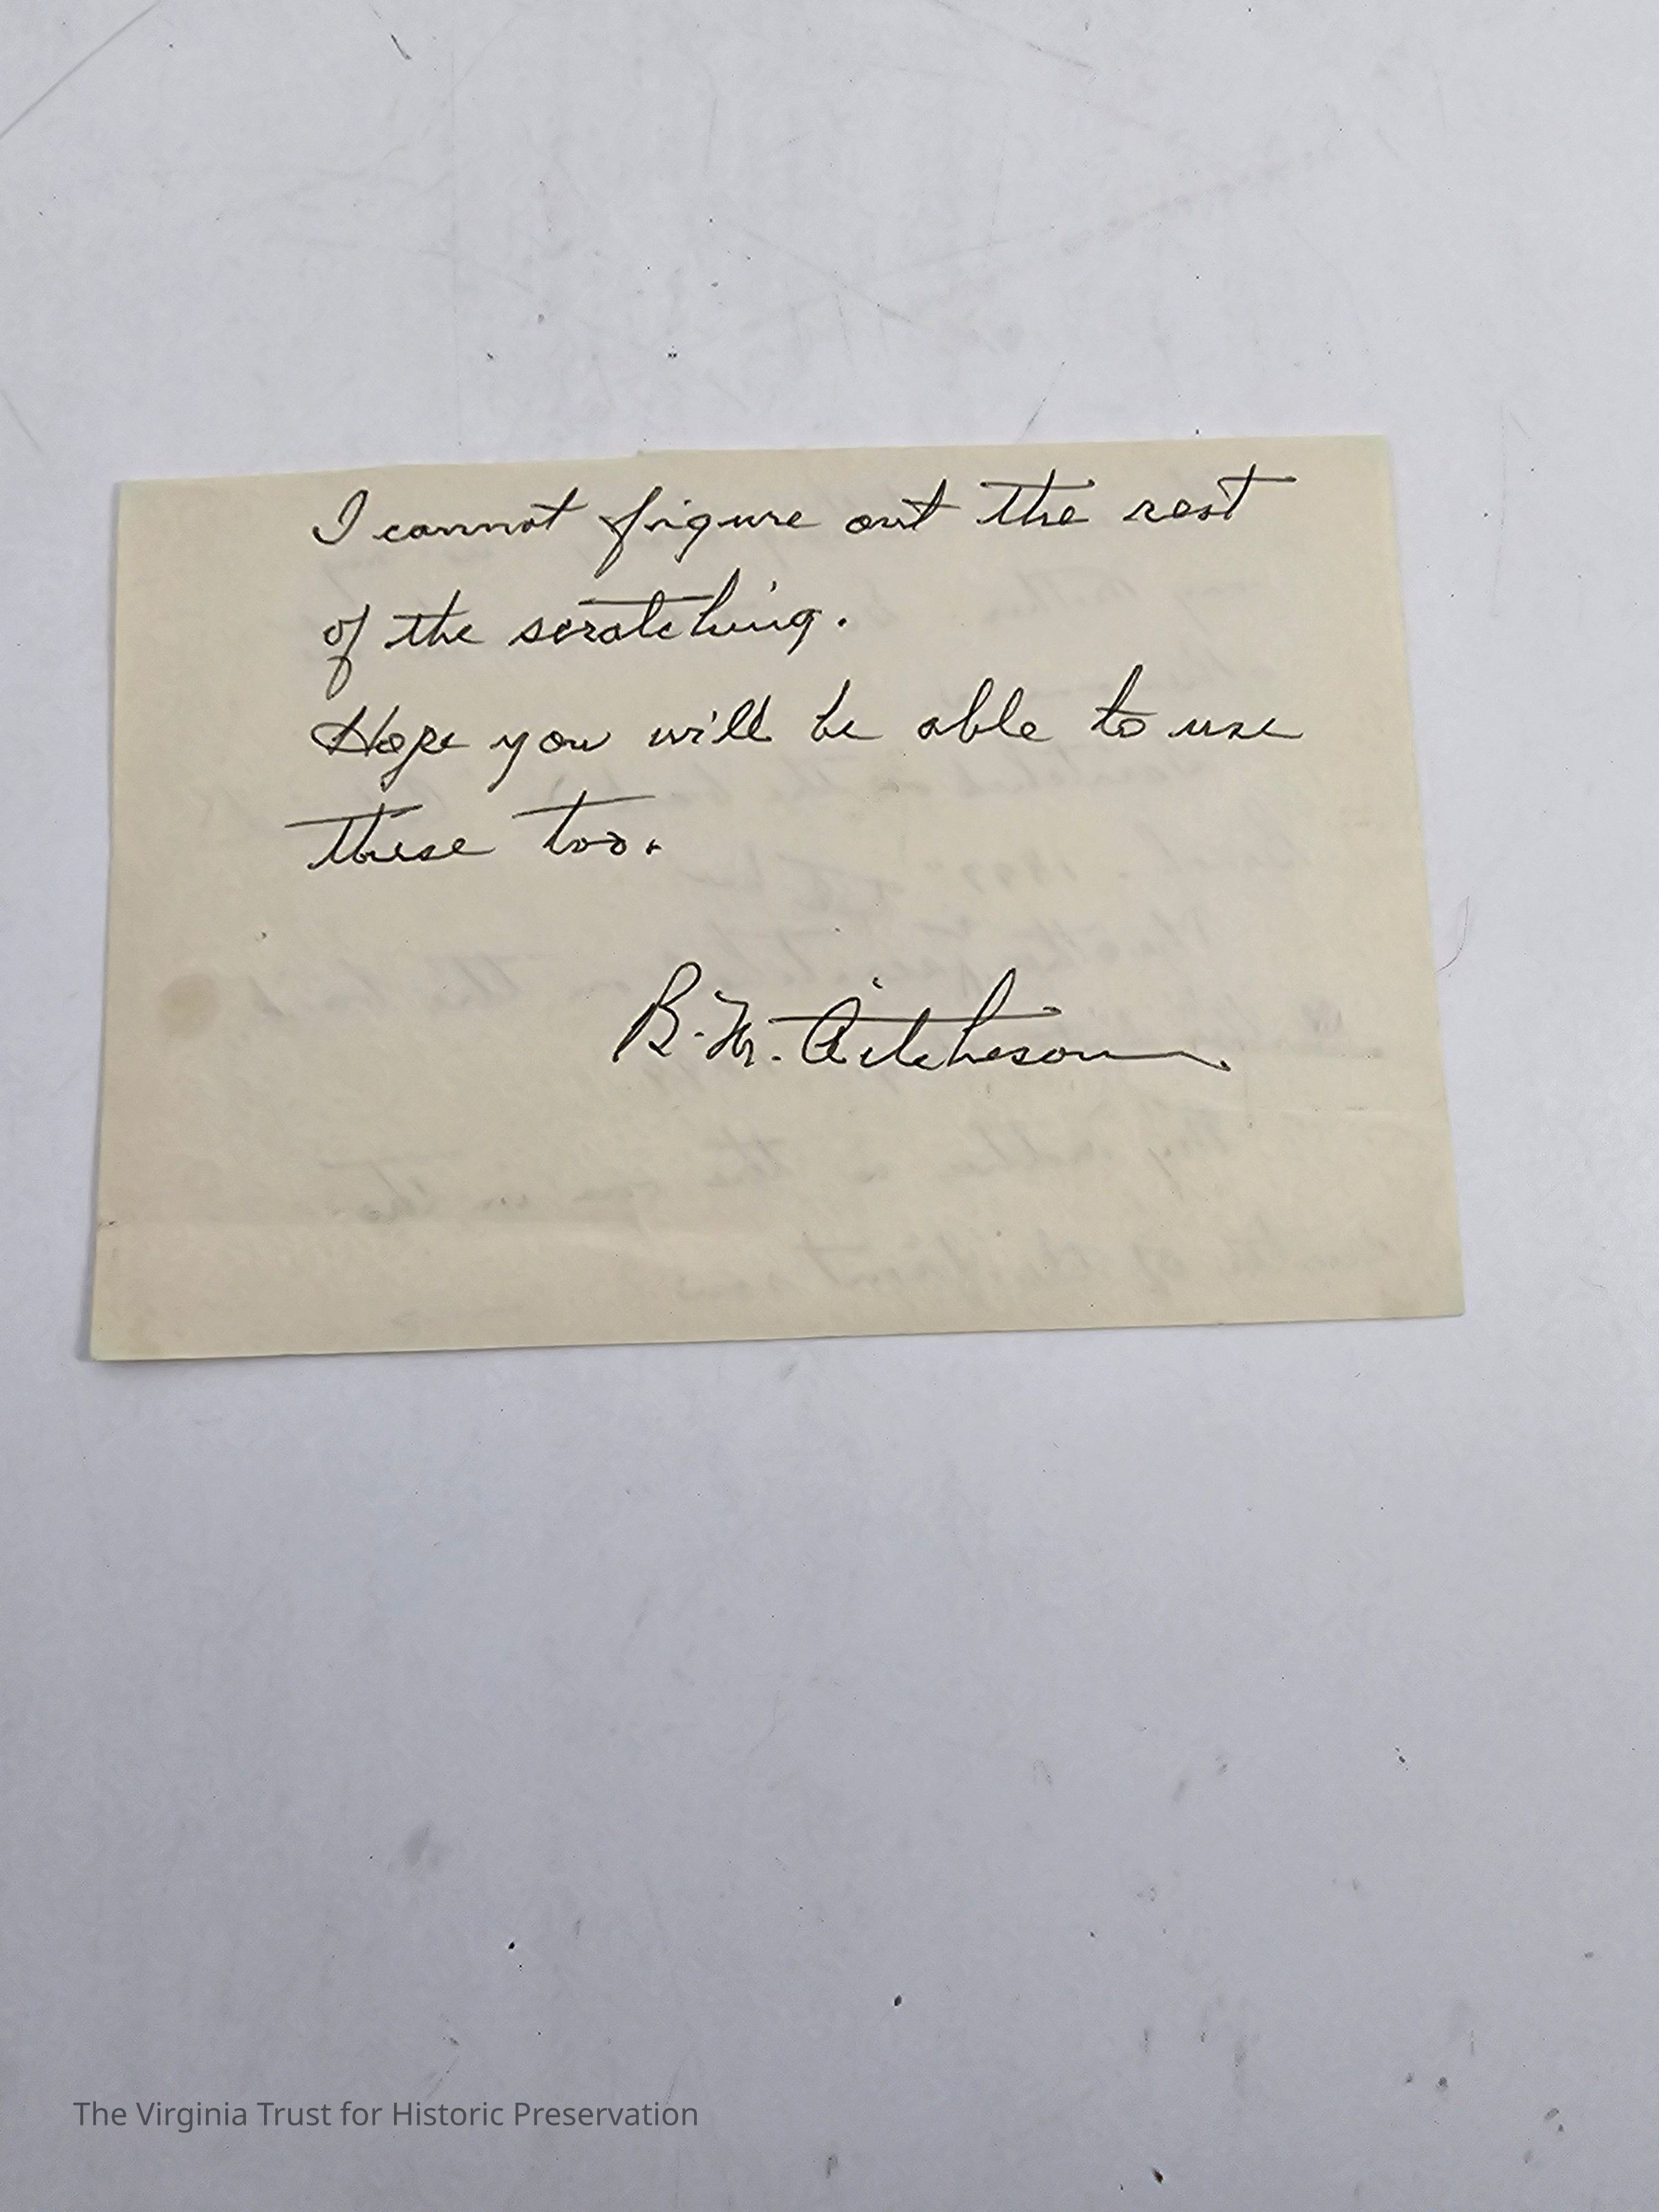 I cannot figure out the rest
of the scratching.
Hope you will be able to use
these too.
B. M. Aitcheson
The Virginia Trust for Historic Preservation